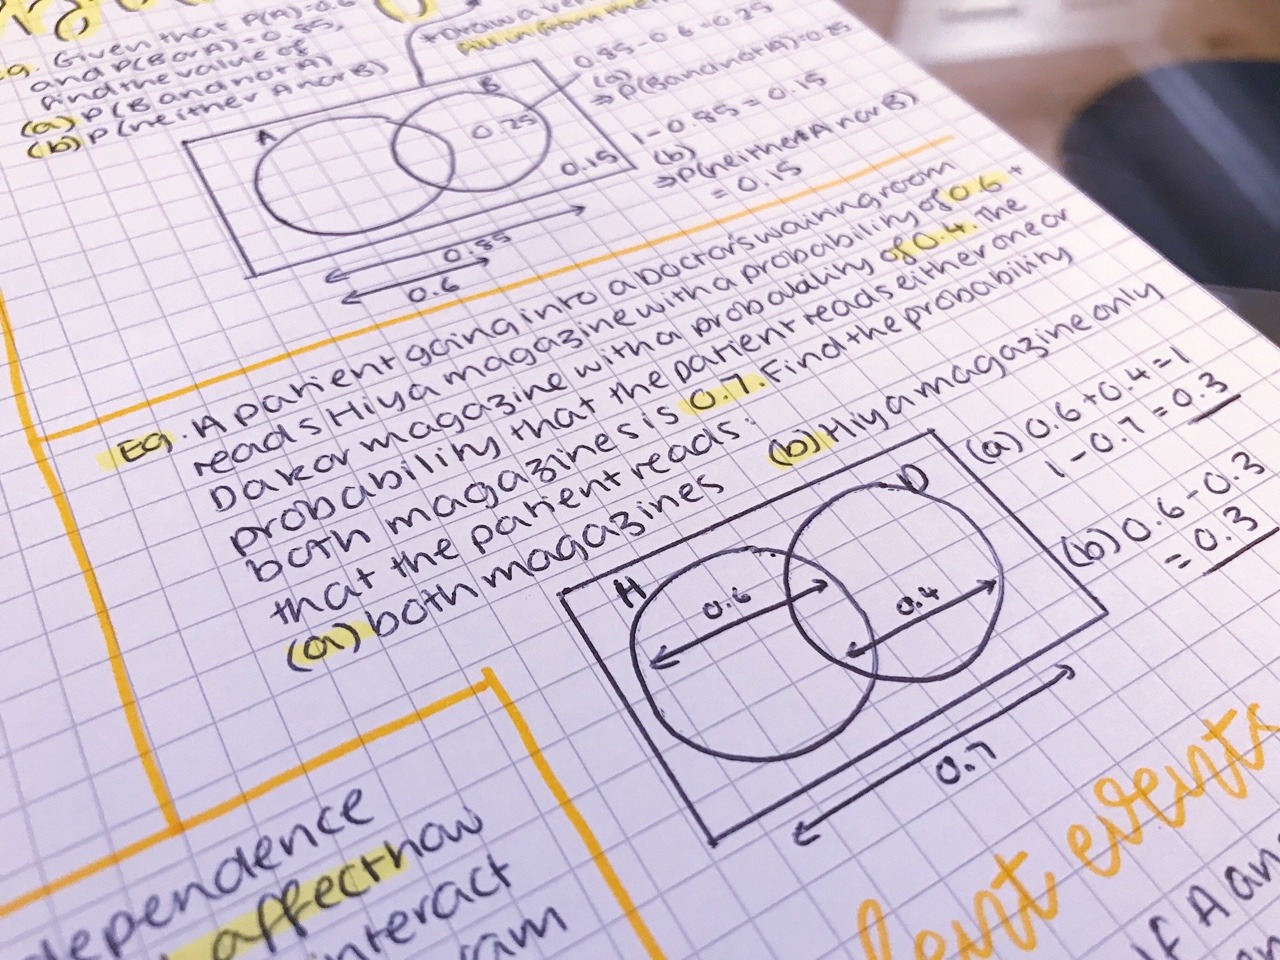 Eg. Given that P(A)=0.6
and P(B or A) = 0.85,
find the value of
(a) P(B and not A)
(b) P(neither A nor B)
A
B
0.25
0.15
0.85
0.6
0.85-0.6=0.25
(a)
⇒ P(B and not A)=0.25
1-0.85=0.15
(b)
⇒ P(neither A nor B)
= 0.15
Eg. A patient going into a Doctor's waiting room
reads Hiya magazine with a probability of 0.6 +
Dakor magazine with a probability of 0.4. The
probability that the patient reads either one or
both magazines is 0.7. Find the probability
that the patient reads:
(a) both magazines (b) Hiya magazine only
H
D
0.6
0.4
0.7
(a) 0.6+0.4=1
1-0.7=0.3
(b) 0.6-0.3
= 0.3
dependence
affect how
interact
events
If A